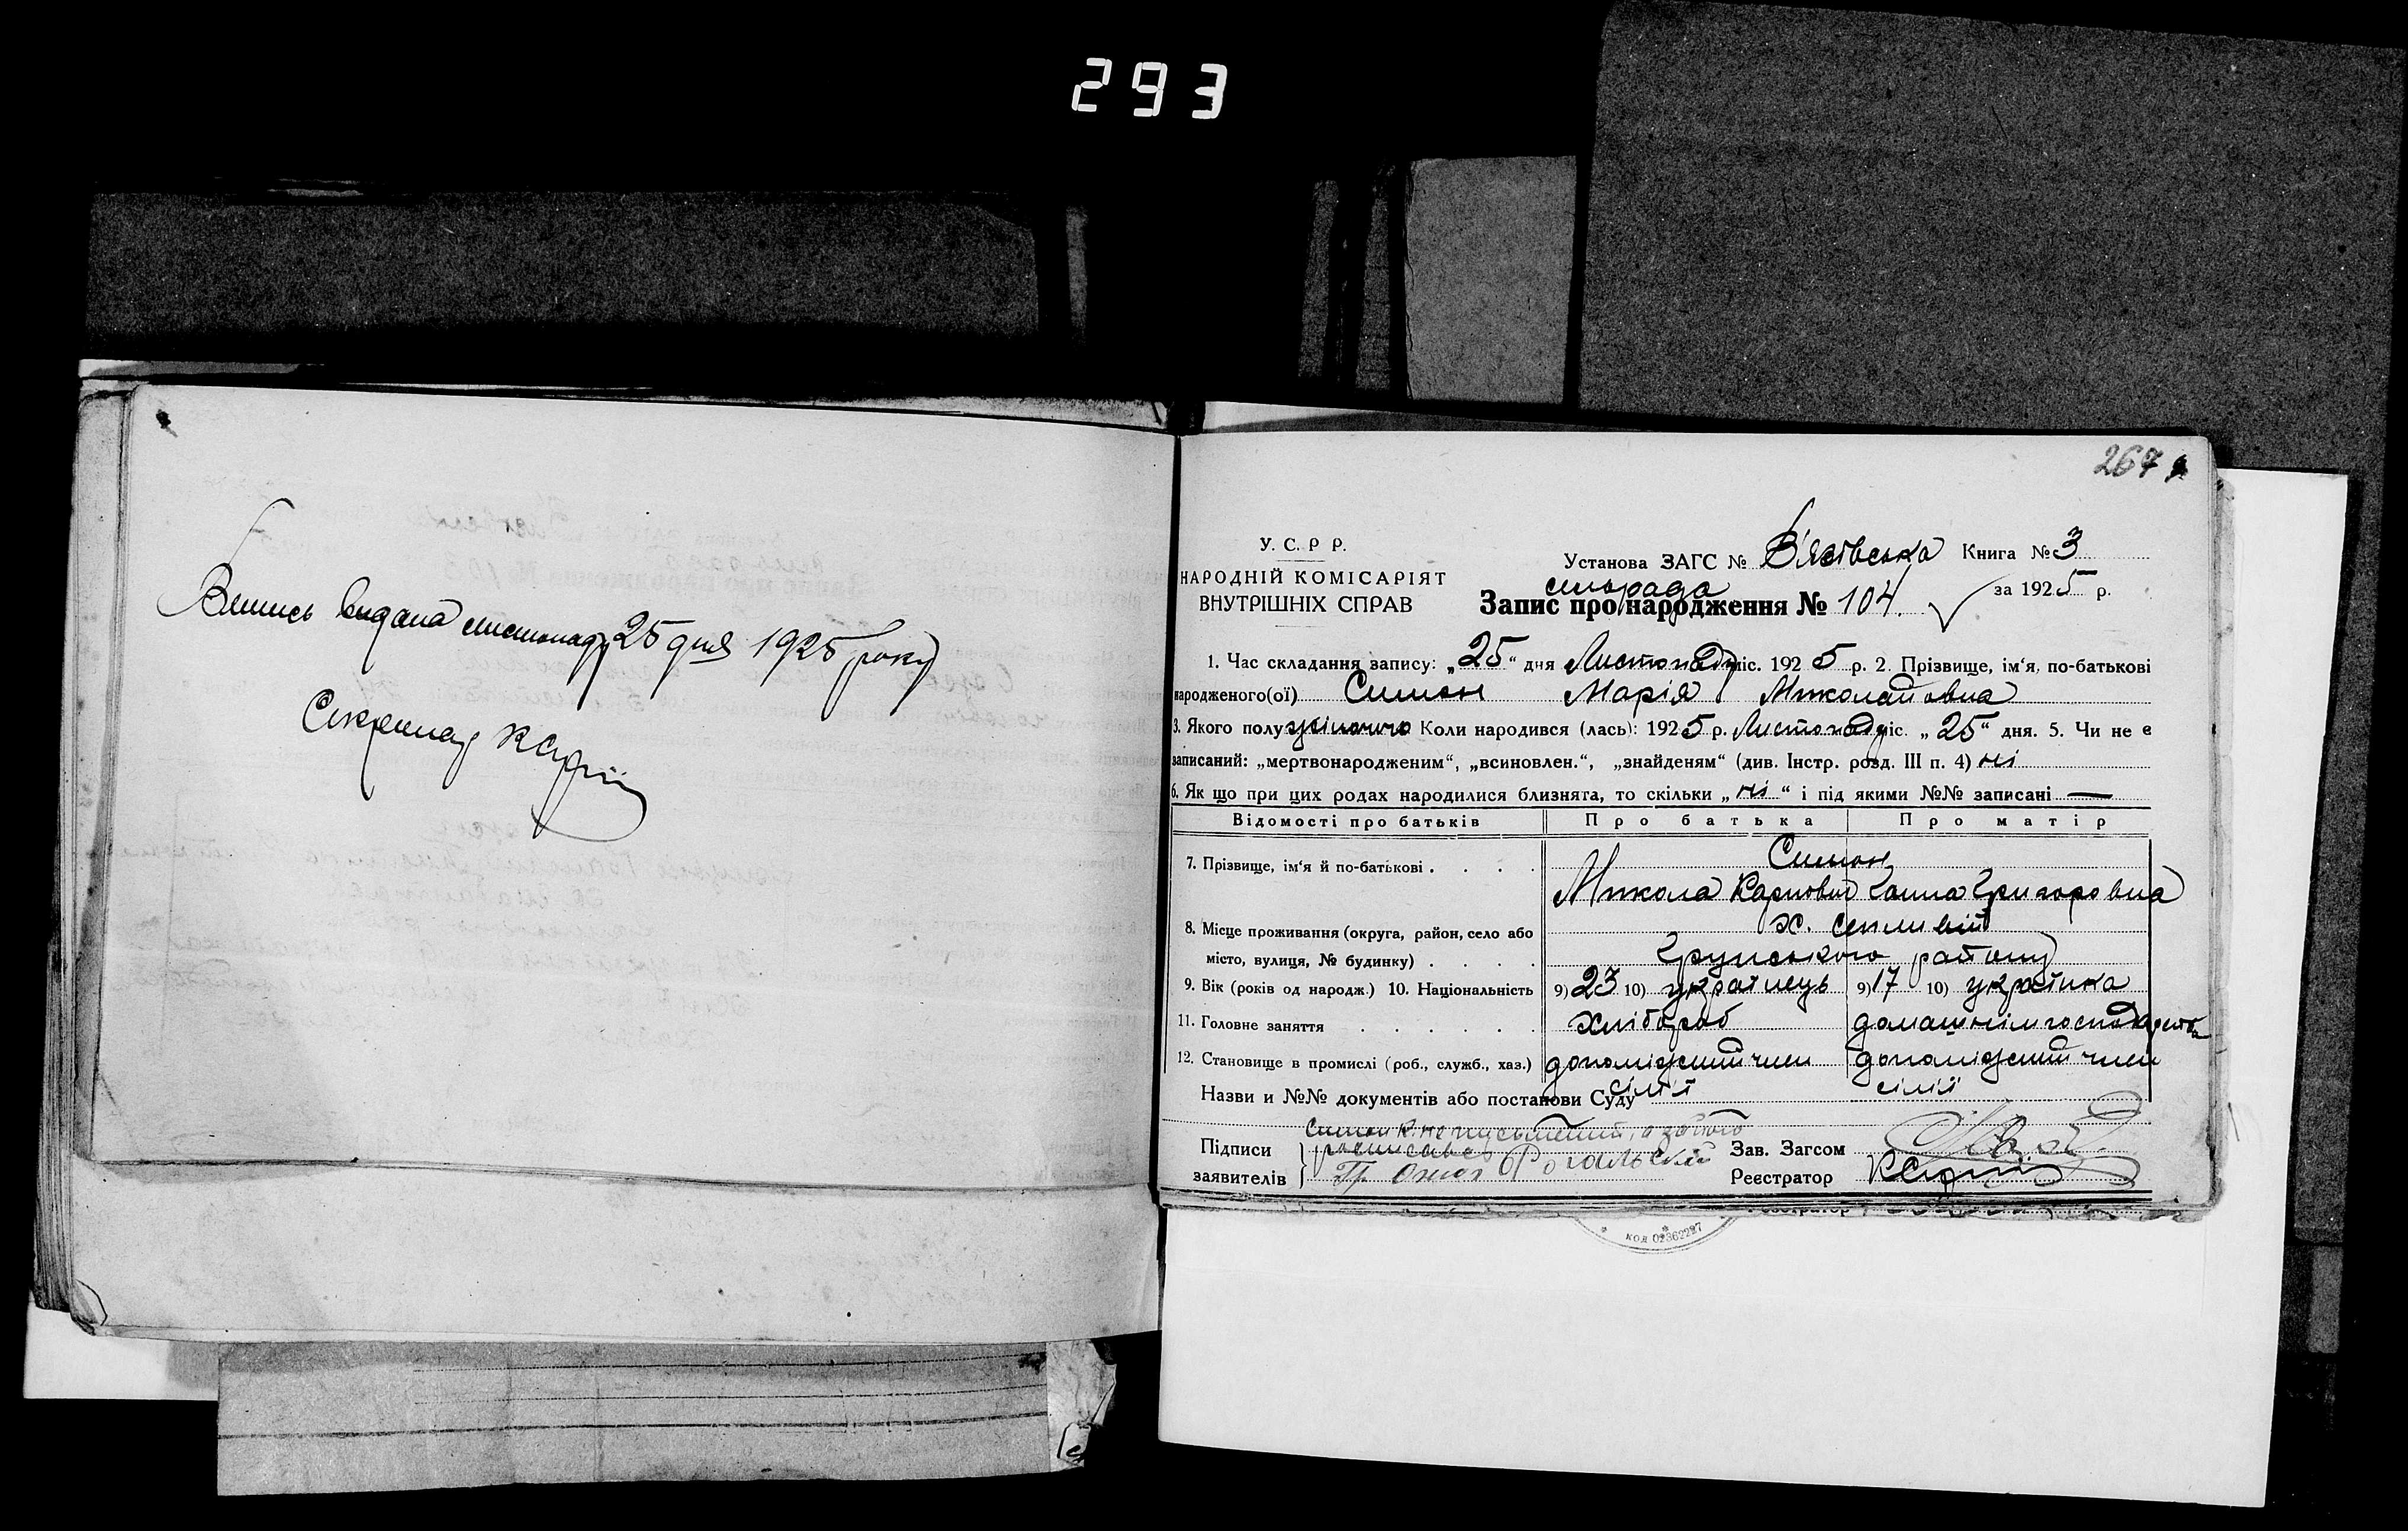 293
Випись видана листопаду 25 дня 1925 року
Секретар
267
У. С. Р Р.
НАРОДНІЙ КОМІСАРІЯТ
ВНУТРІШНІХ СПРАВ
Установа ЗАГС № Вʼязівська Книга № 3
сільрада
Запис про народження № 104. за 1925 р.
1. Час складання запису: „25“ дня Листопаду міс. 1925 р. 2. Прізвище, ім‘я, по-батькові
народженого(ої) Симон Марія Миколаївна
3. Якого полу жіночого Коли народився (лась): 1925 р. Листопаду міс. „25“ дня. 5. Чи не є
записаний: „мертвонародженим“, „всиновлен.“, „знайденям“ (див. Інстр. розд. III п. 4) ні
6. Як що при цих родах народилися близнята, то скільки „ні“ і під якими №№ записані —
Відомості про батьків Про батька Про матір
7. Прізвище, ім‘я й по-батькові . . . . Симон
Микола Карпович Ганна Григоровна
8. Місце проживання (округа, район, село або х.
місто, вулиця, № будинку) . . . . Грунського району
9. Вік (років од народж.) 10. Національність 9) 23 10) українець 9) 17 10) українка
11. Головне заняття . . . . . . хлібороб домашнім господарства
12. Становище в промислі (роб., служб., хаз.) допоміжний член допоміжний член
Назви и №№ документів або постанови Суду сімʼї сімії
Симон К. неписьменний, а за його
Підписи росписавсь Зав. Загсом
заявителів Гр. Рогальский Реєстратор
код 02362297